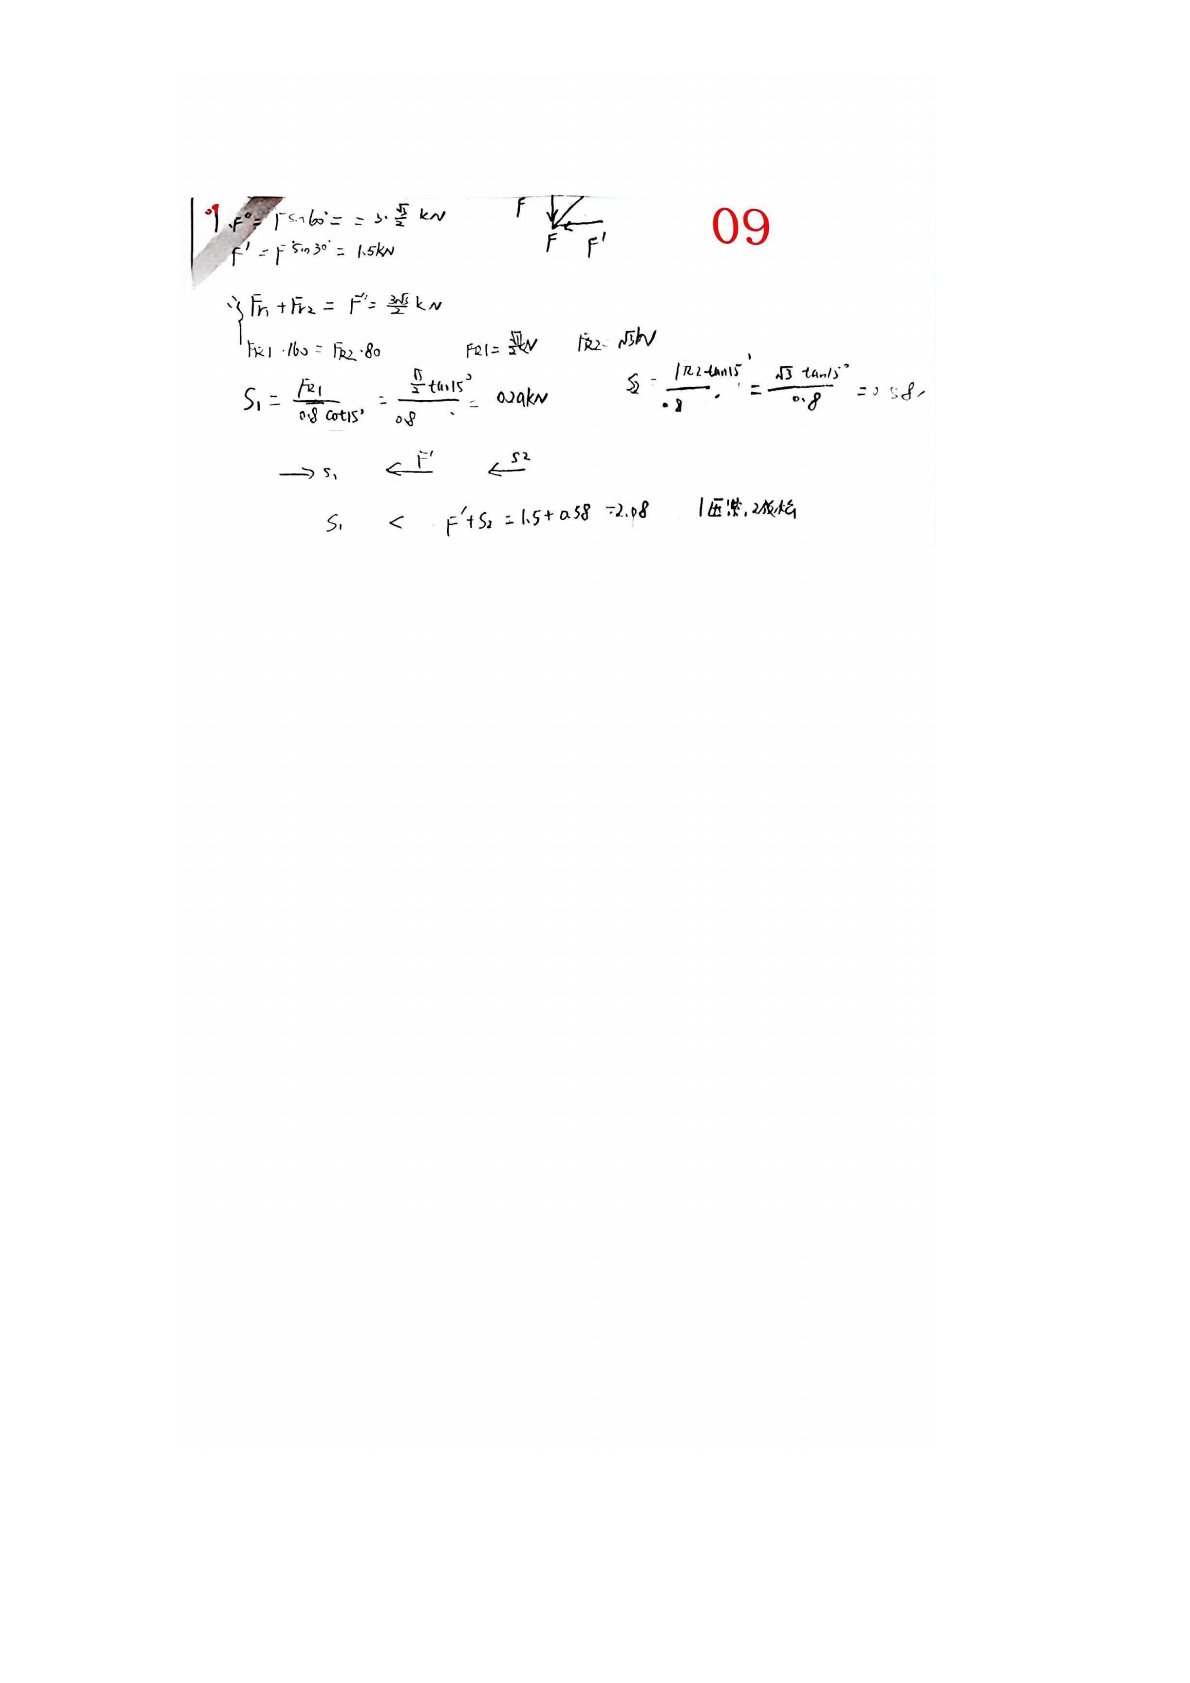 09
F" = F sin60° = = 3·√3/2 kN
F
F' = F sin30° = 1.5kN
F
F'
∵{ Fr1 + Fr2 = F" = 3√3/2 kN
FR1 ·160 = FR2 ·80    FR1 = √3/2 kN    FR2 = √3kN
S1 = FR1/0.8 cot15° = √3/2 tan15°/0.8 = 0.29kN    S2 = FR2 tan15°/.8 = √3 tan15°/0.8 = 0.58
→ S1    ← F'    ← S2
S1 < F'+S2 = 1.5+0.58 =2.08    1压紧,2放松